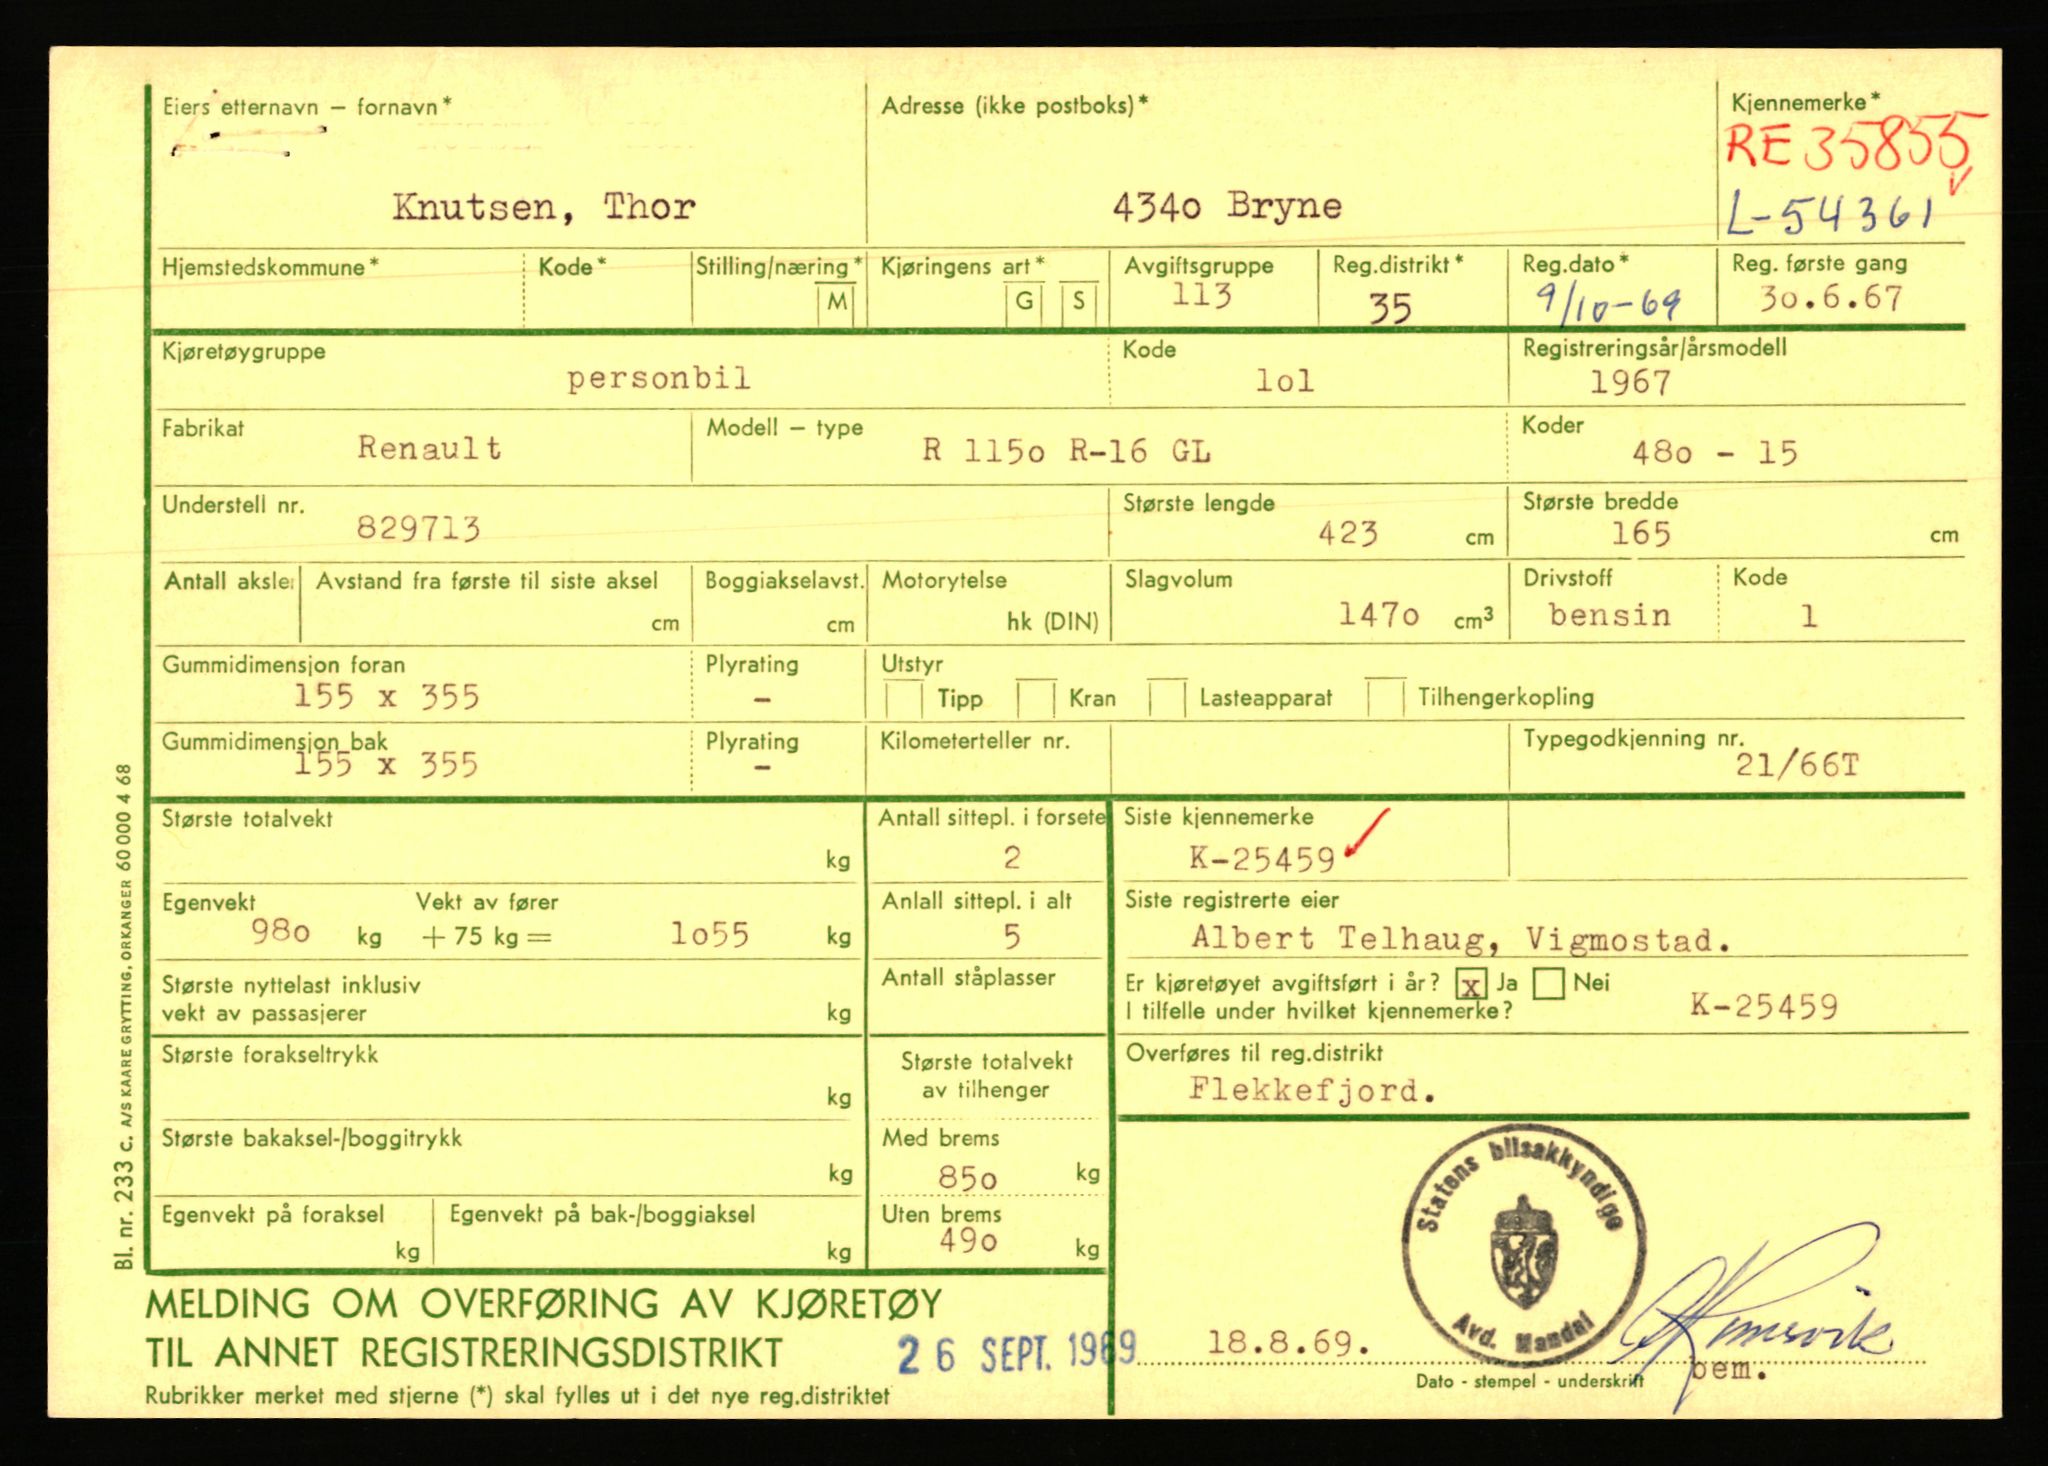 Eiers etternavn – fornavn*
Knutsen, Thor
Adresse (ikke postboks)*
434o Bryne
Kjennemerke*
RE 35855
L-54361
Hjemstedskommune*
Kode*
Stilling/næring*
M
Kjøringens art*
G S
Avgiftsgruppe
113
Reg.distrikt*
35
Reg.dato*
9/10-69
Reg. første gang
3o.6.67
Kjøretøygruppe
personbil
Kode
lol
Registreringsår/årsmodell
1967
Fabrikat
Renault
Modell – type
R 115o R-16 GL
Koder
48o - 15
Understell nr.
829713
Største lengde
423 cm
Største bredde
165 cm
Antall aksle
Avstand fra første til siste aksel
cm
Boggiakselavst.
cm
Motorytelse
hk (DIN)
Slagvolum
147o cm³
Drivstoff
bensin
Kode
1
Gummidimensjon foran
155 x 355
Plyrating
-
Utstyr
Tipp Kran Lasteapparat Tilhengerkopling
Gummidimensjon bak
155 x 355
Plyrating
-
Kilometerteller nr.
Typegodkjenning nr.
21/66T
Største totalvekt
kg
Antall sittepl. i forsete
2
Siste kjennemerke
K-25459
Egenvekt
98o kg
Vekt av fører
+ 75 kg = 1o55 kg
Anlall sittepl. i alt
5
Siste registrerte eier
Albert Telhaug, Vigmostad.
Største nyttelast inklusiv
vekt av passasjerer kg
Antall ståplasser
Er kjøretøyet avgiftsført i år? x Ja Nei
I tilfelle under hvilket kjennemerke? K-25459
Største forakseltrykk
kg
Største totalvekt
av tilhenger
Overføres til reg.distrikt
Flekkefjord.
Største bakaksel-/boggitrykk
kg
Med brems
85o kg
Egenvekt på foraksel
kg
Egenvekt på bak-/boggiaksel
kg
Uten brems
49o kg
Statens bilsakkyndige
Avd. Mandal
MELDING OM OVERFØRING AV KJØRETØY
TIL ANNET REGISTRERINGSDISTRIKT
26 SEPT. 1969
18.8.69.
bem.
Dato - stempel - underskrift
Rubrikker merket med stjerne (*) skal fylles ut i det nye reg.distriktet
Bl. nr. 233 C. A/S KAARE GRYTTING, ORKANGER 60 000 4 68